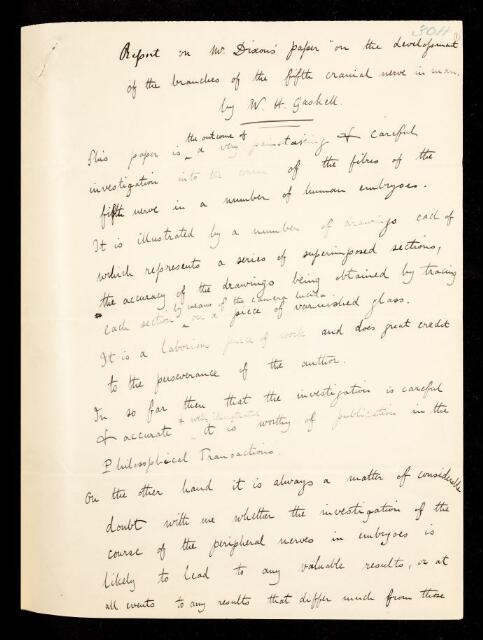 304
Report on Mr. Dixon's paper "on the development
of the branches of the fifth cranial nerve in man.
by W. H. Gaskell.
This paper is the outcome of a very painstaking & careful
investigation into the course of the fibres of the
fifth nerve in a number of human embryos.
It is illustrated by a number of drawings each of
which represents a series of superimposed sections,
the accuracy of the drawings being obtained by tracing
each section by means of the camera lucida on a piece of varnished glass.
It is a laborious piece of work and does great credit
to the perseverance of the author.
In so far then that the investigation is careful
& accurate & well illustrated it is worthy of publication in the
Philosophical Transactions.
On the other hand it is always a matter of considerable
doubt with me whether the investigation of the
course of the peripheral nerves in embryos is
likely to lead to any valuable results, or at
all events to any results that differ much from those